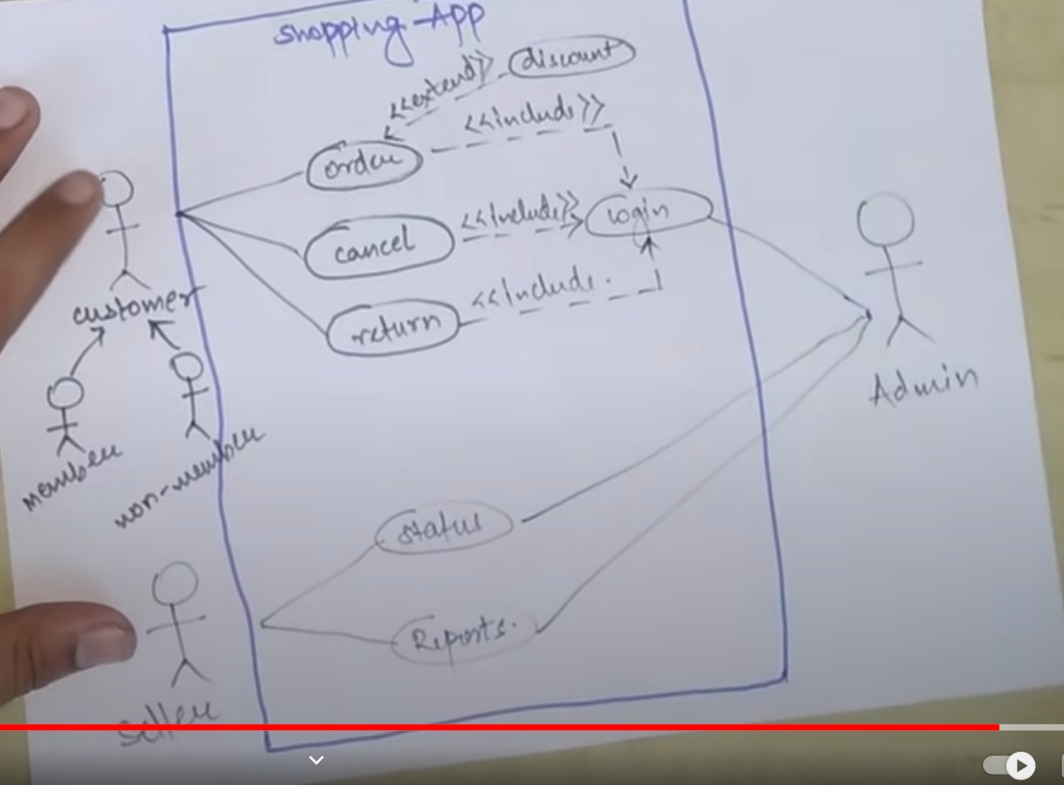 Shopping-App
<<extend>> discount
<<include>>
order
<<include>> login
cancel
<<Include.
return
customer
member
non-member
Admin
status
Reports.
seller